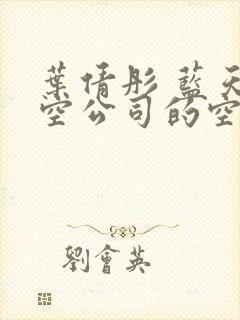 葉倩彤 藍天
空公司的空
劉會英